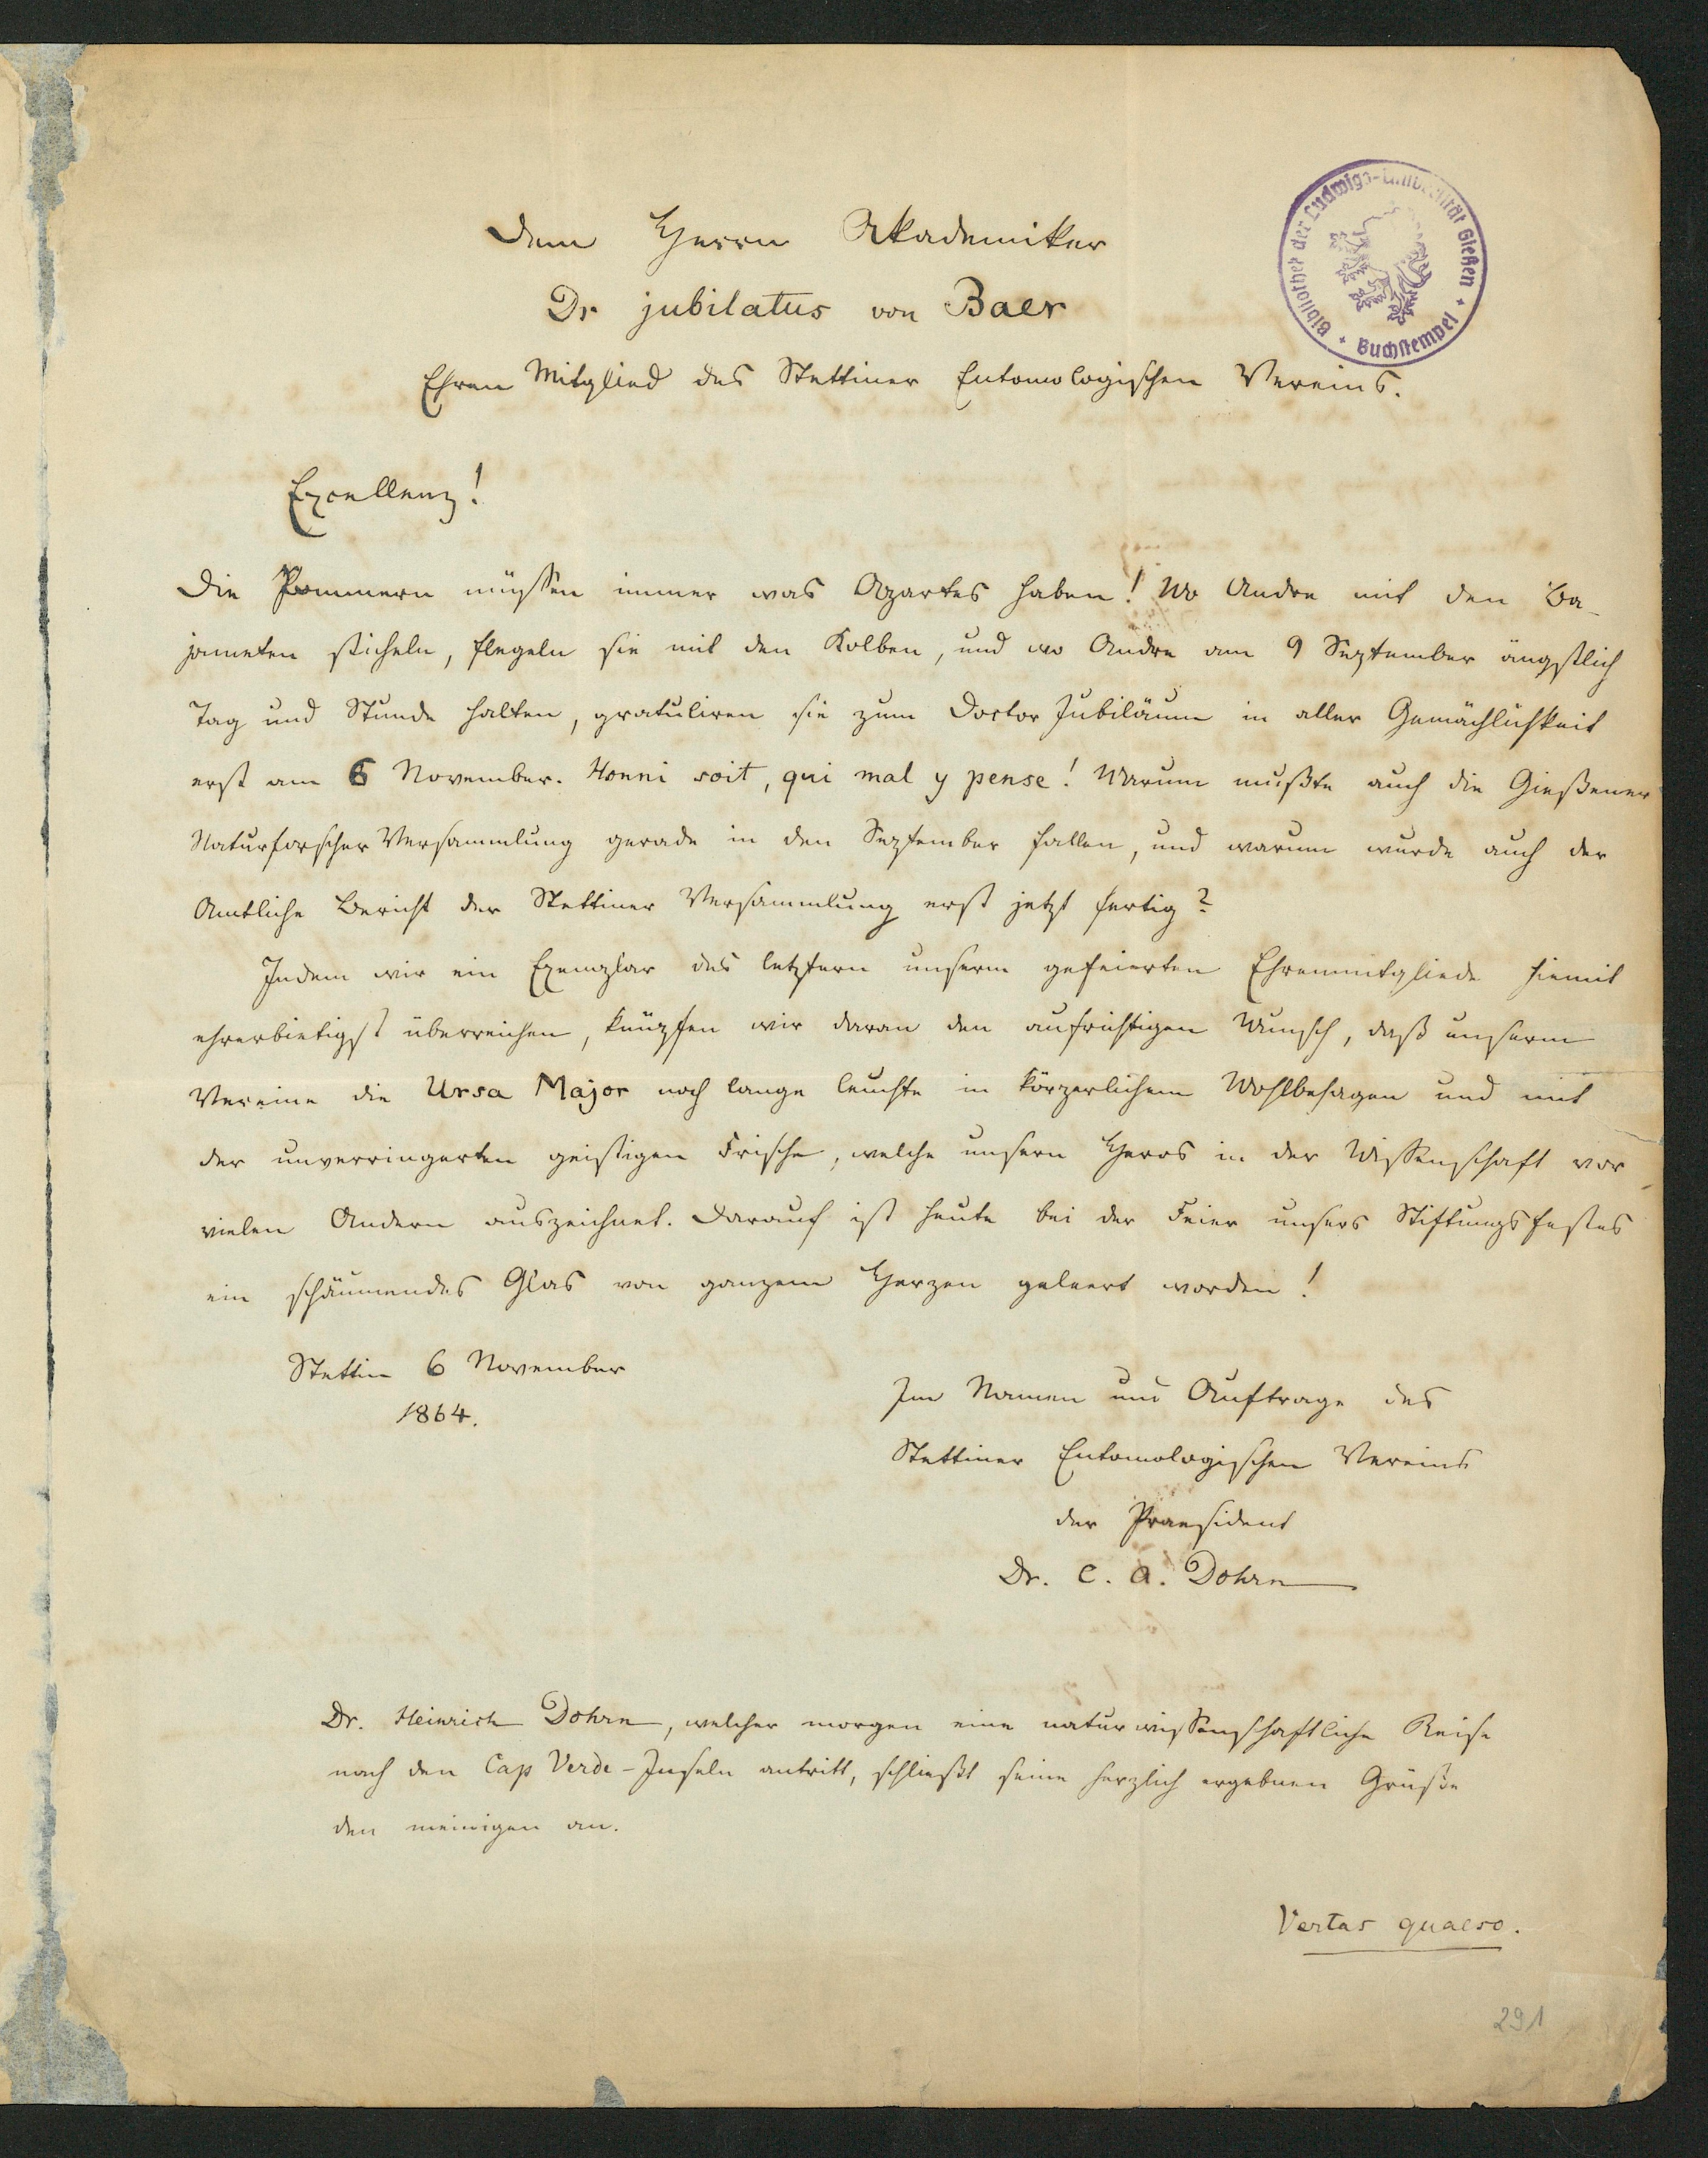 Dem Herrn Akademiker
Dr jubilatus von Baer
Ehren Mitglied des Stettiner Entomologischen Vereins.
Bibliothek der Ludwigs-Universität Gießen
+ Buchstempel +
Excellenz!
Die Pommern müssen immer was Apartes haben! Wo Andre mit den Ba-
jonneten sticheln, flegeln sie mit den Kolben, und wo Andre am 9 September ängstlich
Tag und Stunde halten, gratuliren sie zum Doctor Jubiläum in aller Gemächlichkeit
erst am 6 November. Honni soit, qui mal y pense! Warum mußte auch die Gießener
Naturforscher Versammlung gerade in den September fallen, und warum wurde auch der
Amtliche Bericht der Stettiner Versammlung erst jetzt fertig?
Indem wir ein Exemplar des letztern unserm gefeierten Ehrenmitgliede hiemit
ehrerbietigst überreichen, knüpfen wir daran den aufrichtigen Wunsch, daß unserm
Vereine die Ursa Major noch lange leuchte in körperlichem Wohlbehagen und mit
der unverringerten geistigen Frische, welche unsern Heros in der Wissenschaft vor
vielen Andern auszeichnet. Darauf ist heute bei der Feier unsers Stiftungsfestes
ein schäumendes Glas von ganzem Herzen geleert worden!
Stettin 6 November
1864.
Im Namen und Auftrage des
Stettiner Entomologischen Vereins
der Praesident
Dr. C. A. Dohrn
Dr. Heinrich Dohrn, welcher morgen eine naturwissenschaftliche Reise
nach den Cap Verde-Inseln antritt, schließt seine herzlich ergebnen Grüße
den meinigen an.
Vertas quaeso.
291